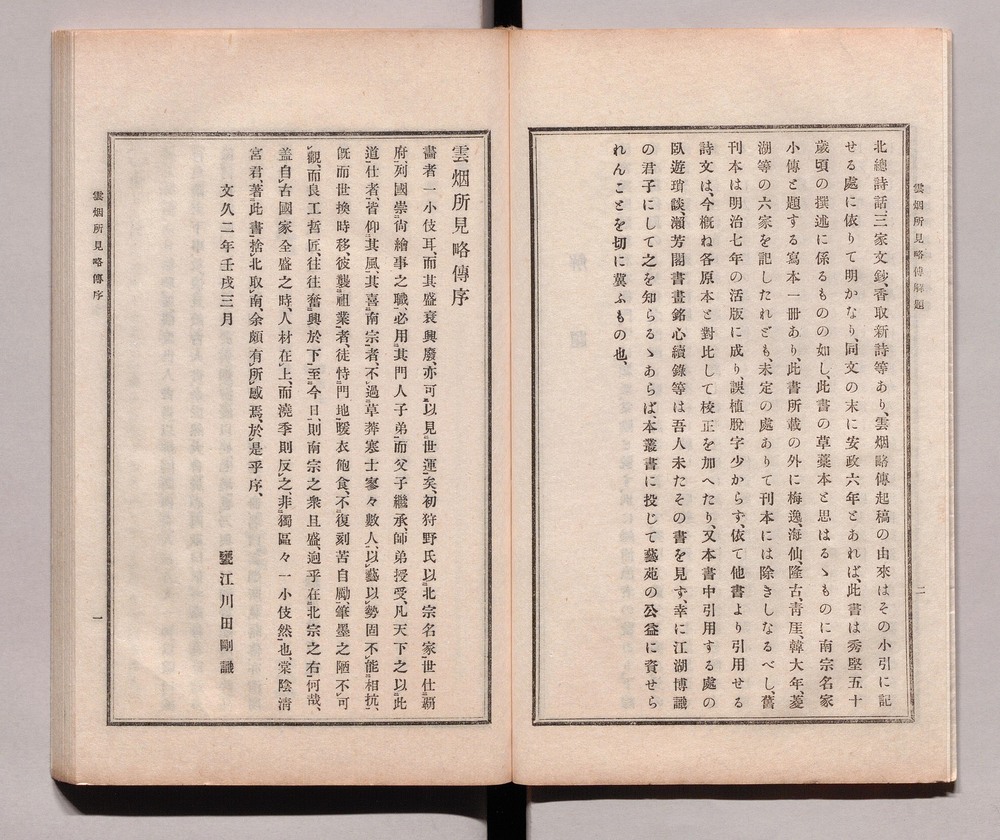 雲烟所見略傳解題
二
北總詩話、三家文鈔、香取新詩等あり、雲烟略傳起稿の由來はその小引に記
せる處に依りて明かなり、同文の末に安政六年とあれば、此書は秀堅五十
歳頃の撰述に係るものの如し、此書の草藁本と思はるゝものに南宗名家
小傳と題する寫本一册あり、此書所載の外に梅逸、海仙、隆古、靑厓、韓大年、菱
湖等の六家を記したれども、未定の處ありて刊本には除きしなるべし、舊
刊本は明治七年の活版に成り、誤植脫字少からず、依て他書より引用せる
詩文は、今槪ね各原本と對比して校正を加へたり、又本書中引用する處の
臥遊瑣談、瀨芳閣書畫銘心續錄等は吾人未たその書を見ず、幸に江湖博識
の君子にして之を知らるゝあらば、本叢書に投じて藝苑の公益に資せら
れんことを切に冀ふもの也、
雲烟所見略傳序
畵者一小伎耳、而其盛衰興廢亦可以見世運矣、初狩野氏以北宗名家世仕覇
府、列國崇尙繪事之職、必用其門人子弟、而父子繼承、師弟授受、凡天下之以此
道仕者、皆仰其風、其喜南宗者、不過草莽寒士寥々數人、以藝以勢固不能相抗、
旣而世換時移、彼襲祖業者、徒恃門地、暖衣飽食、不復刻苦自勵、筆墨之陋不可
觀、而良工哲匠、往往奮興於下、至今日、則南宗之衆且盛、迥乎在北宗之右、何哉、
盖自古國家全盛之時、人材在上、而澆季則反之、非獨區々一小伎然也、棠陰淸
宮君、著此書、捨北取南、余頗有所感焉、於是乎序、
文久二年壬戌三月
甕江川田剛識
雲烟所見略傳序
一